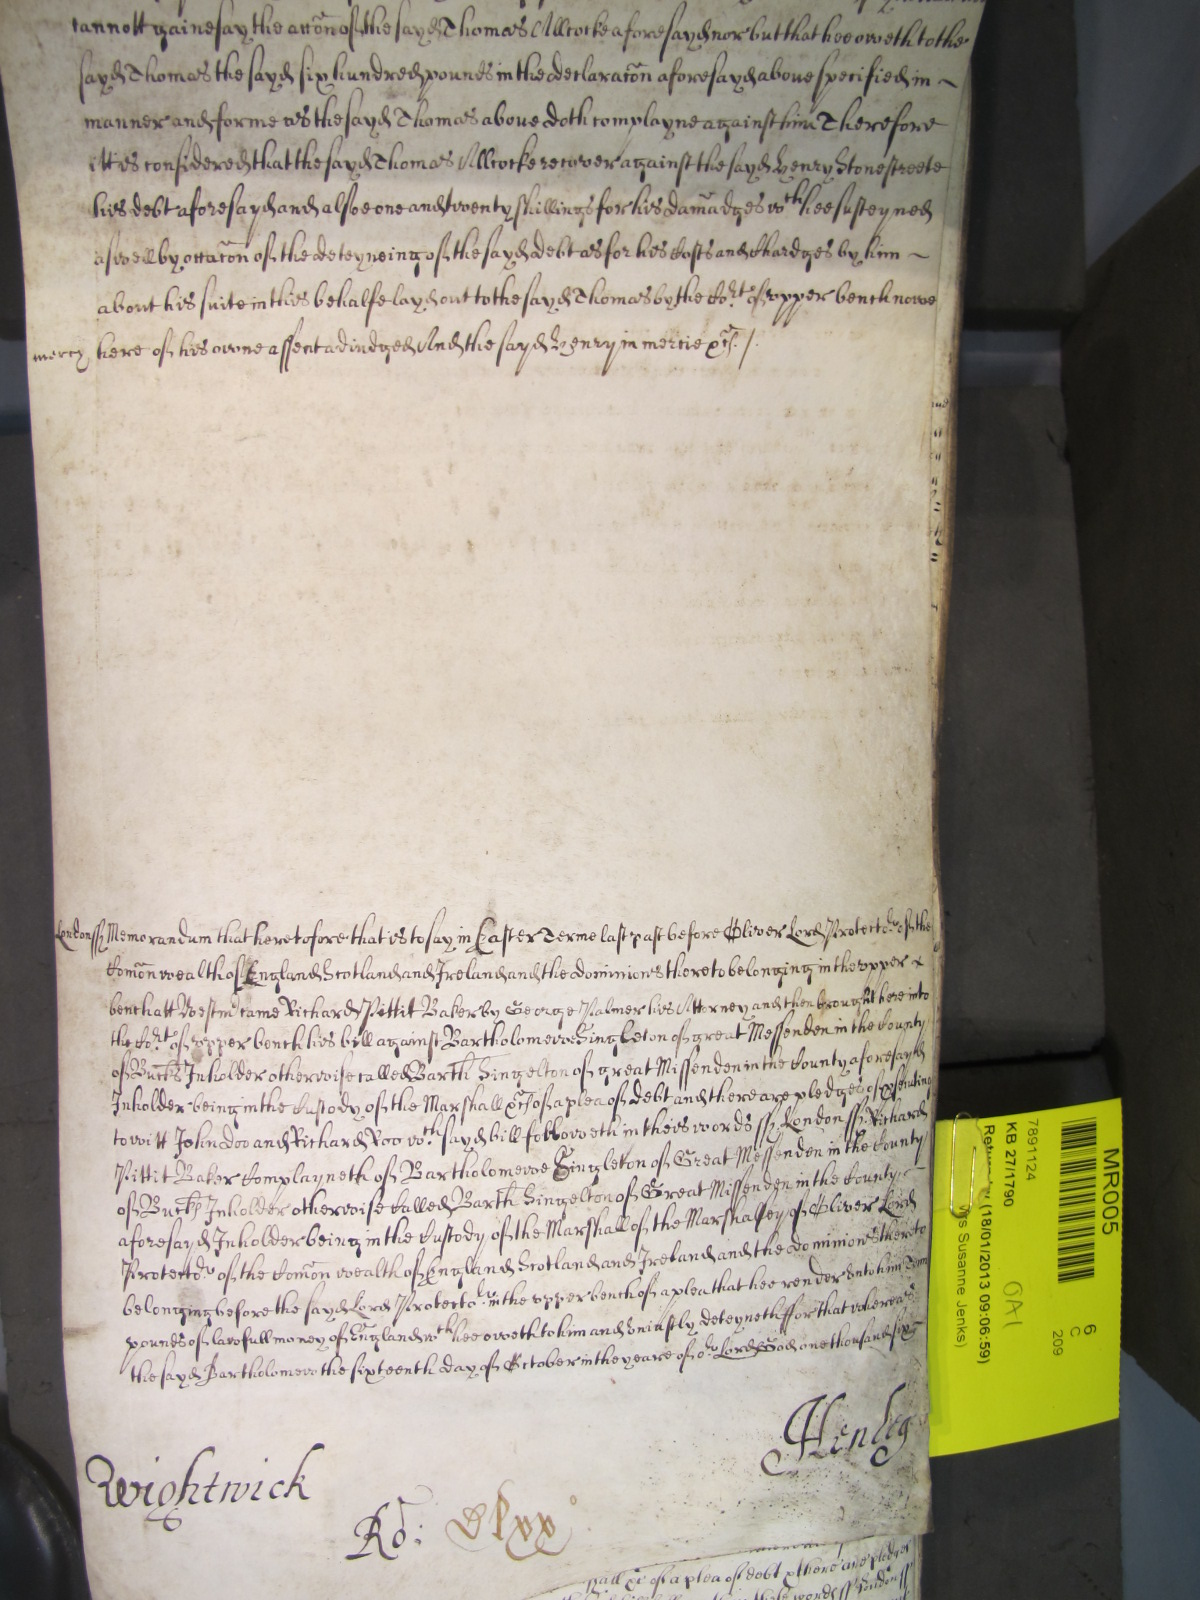 cannott gainesay the accon of the sayd Thomas Allcocke aforesayd nor but that hee oweth to the
sayd Thomas the sayd six hundred pounds in the declaracon aforesayd above specified in
manner and forme as the sayd Thomas above doth complayne against him Therefore
itt is considered that the sayd Thomas Allcocke recover against the sayd Henry Stonestreete
his debt aforesayd and alsoe one and twenty shillings for his damadges wch hee susteyned
aswell by occacon of the deteyneing of the sayd debt as for his Costs and Chardges by him
about his suite in this behalfe layd out to the sayd Thomas by the Cort of upper bench nowe
mercy here of his owne assent adiudged And the sayd Henry in mercie &c /.
London ss Memorandum that heretofore that is to say in Easter Terme last past before Oliver Lord Protector of the
Comon wealth of England Scotland and Ireland and the dominions thereto belonging in the upper
bench att Westmr came Richard Pittit Baker by George Palmer his Attorney and then brought here into
the Cort of upper bench his bill against Bartholomewe Singleton of great Messenden in the County
of Bucks Inholder otherwise called Barth Singelton of great Missenden in the County aforesayd
Inholder being in the Custody of the Marshall &c of a plea of debt and there are pledges of psecuting
to witt John doo and Richard Roo wch sayd bill followeth in theis words ss London ss Richard
Pittit Baker Complayneth of Bartholomewe Singleton of Great Messenden in the County
of Bucks Inholder otherwise Called Barth Singelton of Great Missenden in the County
aforesayd Inholder being in the Custody of the Marshall of the Marshalsey of Oliver Lord
Protector of the Comon wealth of England Scotland and Ireland and the dominions thereto
belonging before the sayd Lord Protector in the upper bench of a plea that hee render unto him Tenn
pounds of lawfull money of England wch hee oweth to him and uniustly deteyneth ffor that whereas
the sayd Bartholomew the sixteenth day of October in the yeare of or Lord God one thousand six
Wightwick
Henley
Ro:
all &c of a plea of debt & there are pledges
words ss London ss
MR005
6
C
209
7891124
KB 27/1790
(18/01/2013 09:06:59)
Susanne Jenks)